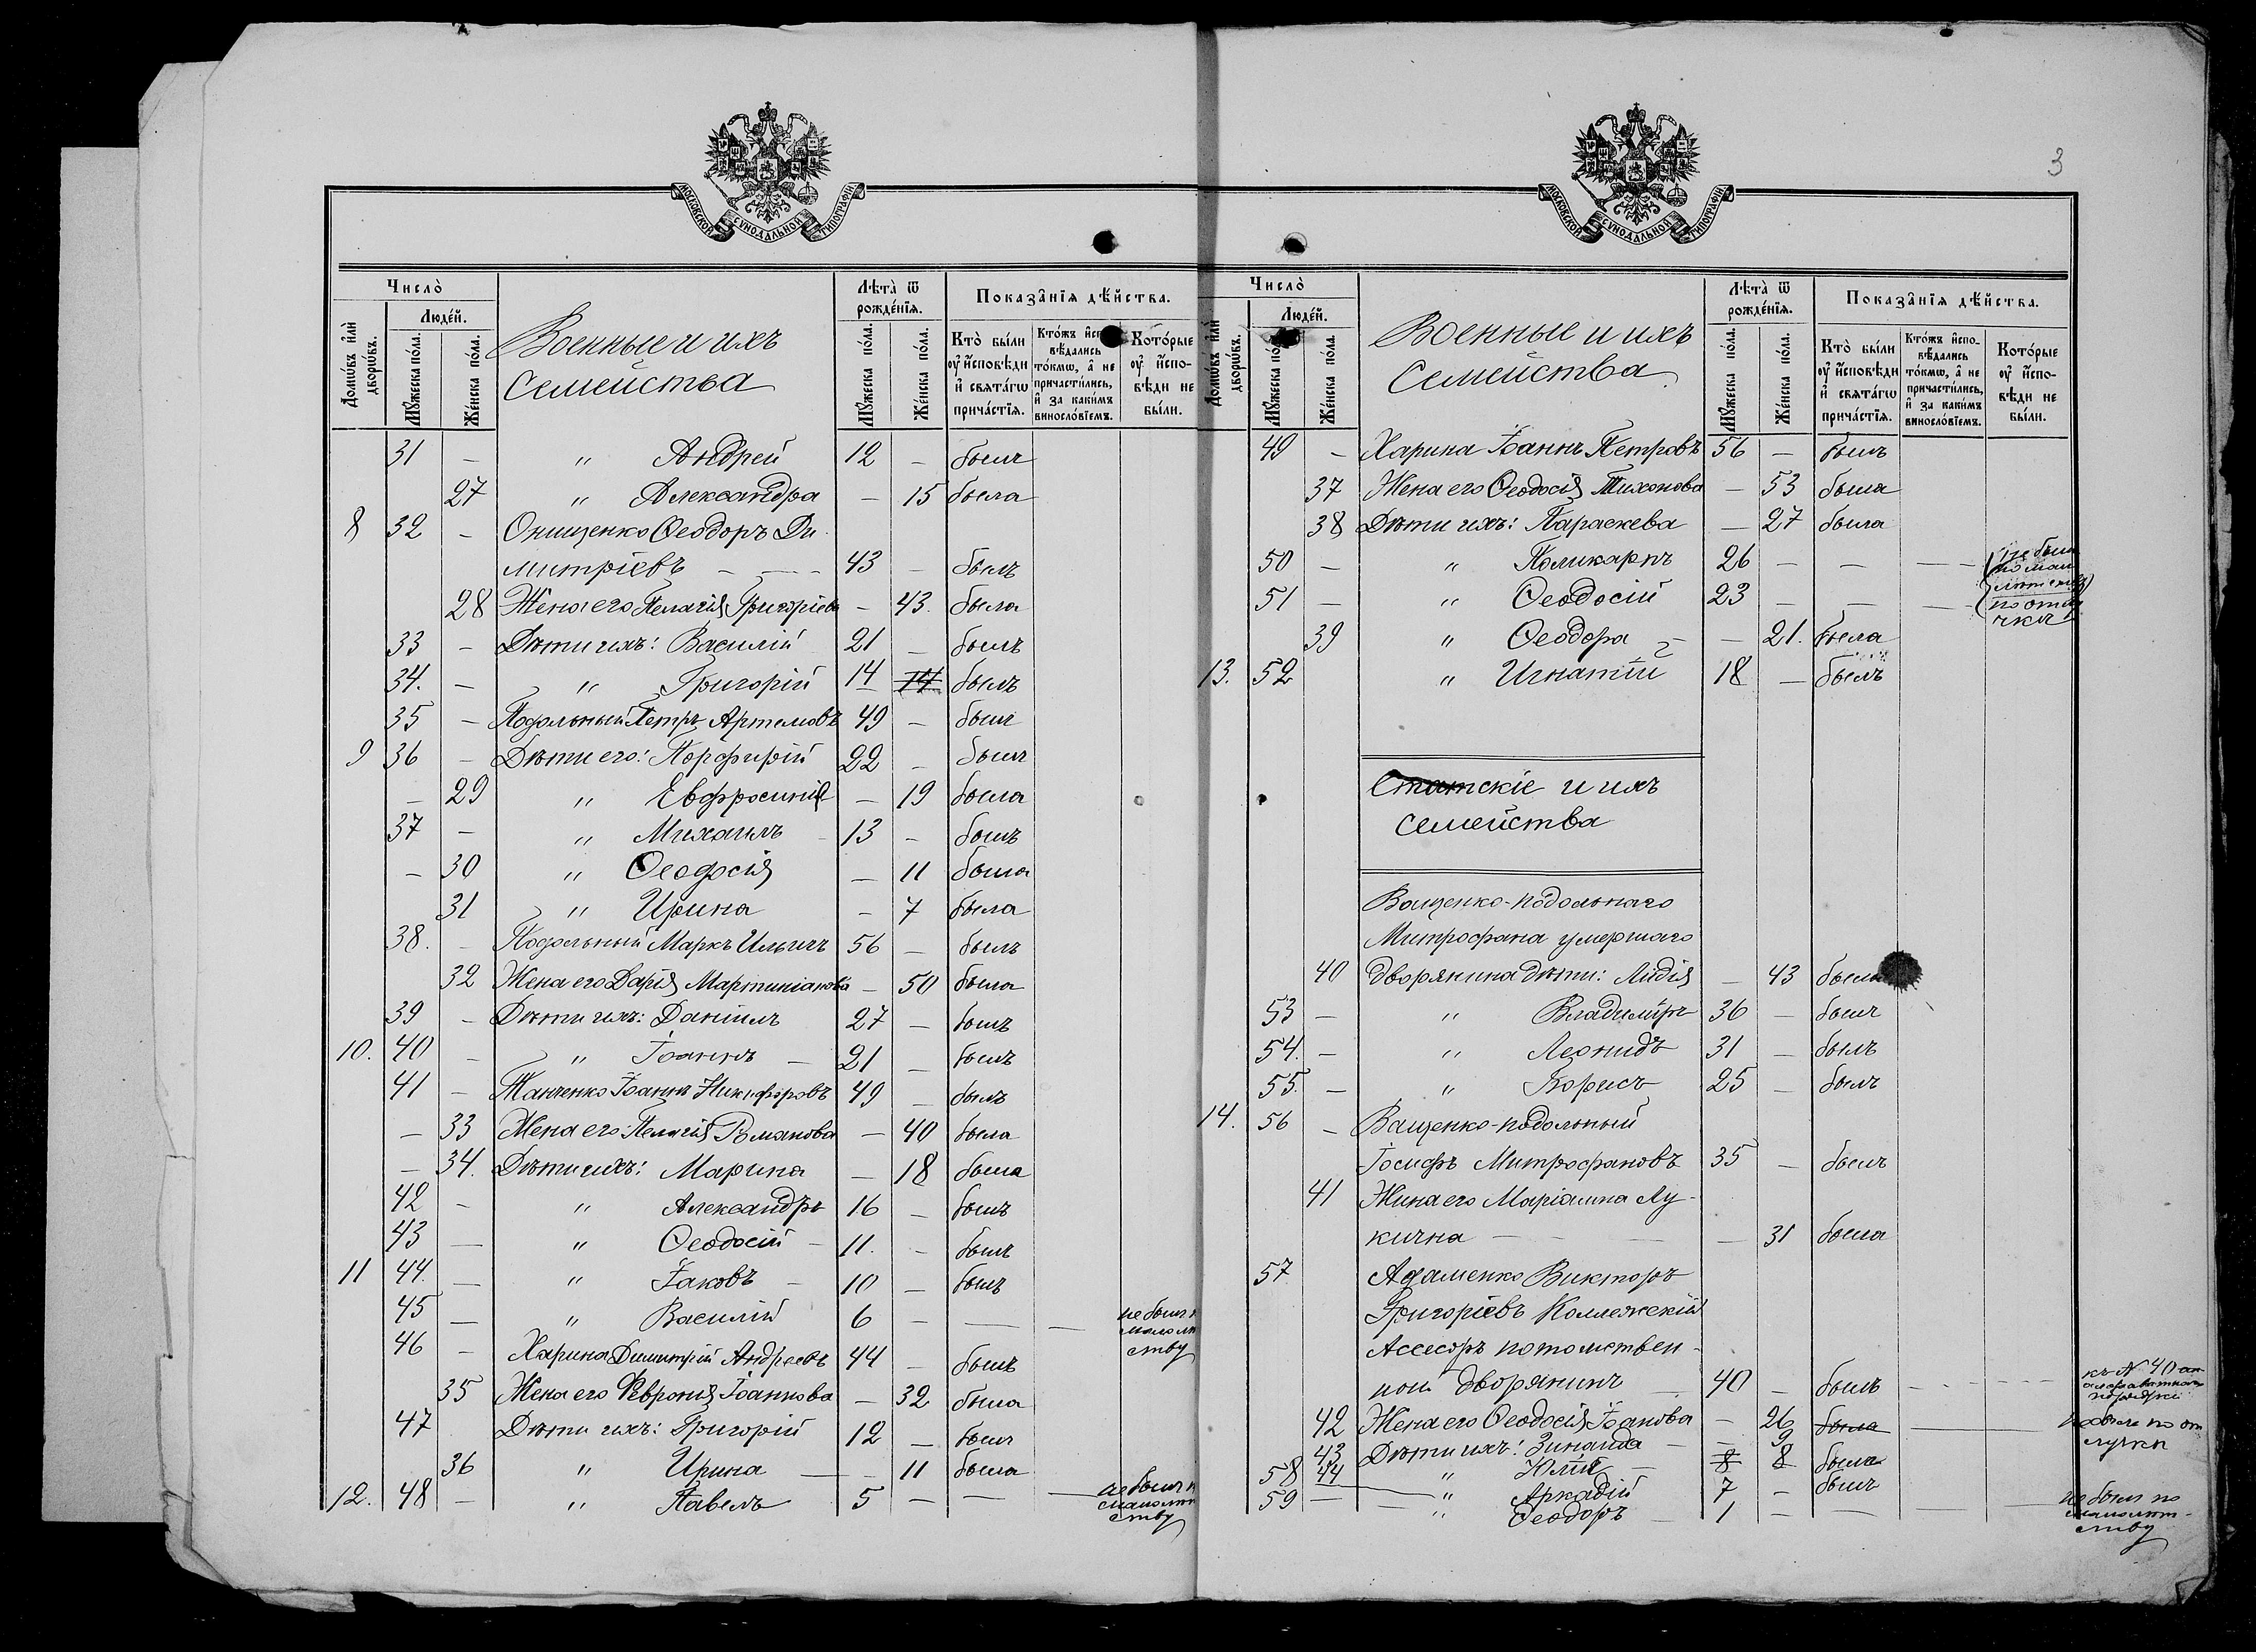 3
МОСКОВСКОЙ СУНОДАЛЬНОЙ ТИПОГРАФІИ
Число̀
Людéй.
Домѡ́въ и҆лѝ дворѡ́въ.
Мꙋ́жеска по́ла.
Же́нска по́ла.
Военные и ихъ
Семейства
Лѣта̀ ѿ рожде́нїѧ.
Мꙋ́жеска по́ла.
Же́нска по́ла.
Показа̂нїѧ дѣ́йства.
Кто̀ бы́ли ѹ҆ и҆сповѣ́ди и҆ свѧта́гѡ прича́стїѧ.
Кто́жъ и҆спо-вѣ́дались то́кмѡ, а҆ не причасти́лись, и҆ за каки́мъ винослѡ́вїемъ.
Кото́рые ѹ҆ и҆спо-вѣ́ди не бы́ли.
31 — " Андрей 12 — былъ
27 " Александра — 15 была
8 32 — Онищенко Ѳеодоръ Ди-
митріевъ — — 43 — былъ
28 Жена его Пелагія Григоріева — 43. была
33 — Дѣти ихъ: Василій 21 — былъ
34. — " Григорій 14 14 былъ
35 — Подольный Петръ Артемовъ 49 — былъ
9 36 — Дѣти его: Порфирій 22 — былъ
— 29 " Евфросинія — 19 была
37 — " Михаилъ 13 — былъ
— 30 " Ѳеодосія — 11 была
31 " Ирина — 7 была
38. — Подольный Маркъ Ильичъ 56 — былъ
32 Жена его Дарія Мартиніанова — 50 была
39 — Дѣти ихъ: Даніилъ 27 — былъ
10. 40 — " Іоаннъ — 21 — былъ
41 — Танченко Іоаннъ Никифоровъ 49 — былъ
— 33 Жена его: Пелагія Романова — 40 была
— 34. Дѣти ихъ: Марина — 18 была
42 — " Александръ 16 — былъ
43 — " Ѳеодосій — 11. — былъ
11 44. — " Іаковъ — 10 — былъ
45 — " Василій 6 — — — не былъ п
малолѣ
ству
46 — Харина Димитрій Андреевъ 44 — былъ
35 Жена его Февронія Іоаннова — 32 была
47 Дѣти ихъ: Григорій 12 — былъ
36 " Ирина — — 11 была
12. 48 — " Павелъ 5 — — — не былъ п
малолѣт
ству
Число̀
Людéй.
Домѡ́въ и҆лѝ дворѡ́въ.
Мꙋ́жеска по́ла.
Же́нска по́ла.
Военные и ихъ
Семейства
Лѣта̀ ѿ рожде́нїѧ.
Мꙋ́жеска по́ла.
Же́нска по́ла.
Показа̂нїѧ дѣ́йства.
Кто̀ бы́ли ѹ҆ и҆сповѣ́ди и҆ свѧта́гѡ прича́стїѧ.
Кто́жъ и҆спо-вѣ́дались то́кмѡ, а҆ не причасти́лись, и҆ за каки́мъ винослѡ́вїемъ.
Кото́рые ѹ҆ и҆спо-вѣ́ди не бы́ли.
49 — Харина Іоаннъ Петровъ 56 — былъ
37 Жена его Ѳеодосія Тихонова — 53 была
38 Дѣти ихъ: Параскева — 27 была
50 — " Поликарпъ 26 — — — не были
51 — " Ѳеодосій 23 — — — по отлу
чкѣ
39 " Ѳеодора — — 21. была
13. 52 " Игнатій 18 — былъ
Статскіе и ихъ
семейства
Ващенко-подольнаго
Митрофана умершаго
40 дворянина дѣти: Лидія — 43 была
53 — " Владиміръ 36 — былъ
54. — " Леонидъ 31 — былъ
55. — " Борисъ 25 — былъ
14. 56 — Ващенко-подольный
Іосифъ Митрофановъ 35 — былъ
41 Жена его Маріамна Лу-
кична — — — 31 была
57 Адаменко Викторъ
Григоріевъ Коллежскій
Ассесоръ потомствен-
ной дворянинъ 40 — былъ — къ № 40
алфавитнаго
порядка
42 Жена его Ѳеодосія Іоанова — 26 была — — не была по от
лучкѣ
43 Дѣти ихъ: Зинаида — — 9
58 44 " Юлія — 8 8 была
59 — " Аркадій 7 — былъ
" Ѳеодоръ — 1 — — — не былъ по
малолѣт-
ству